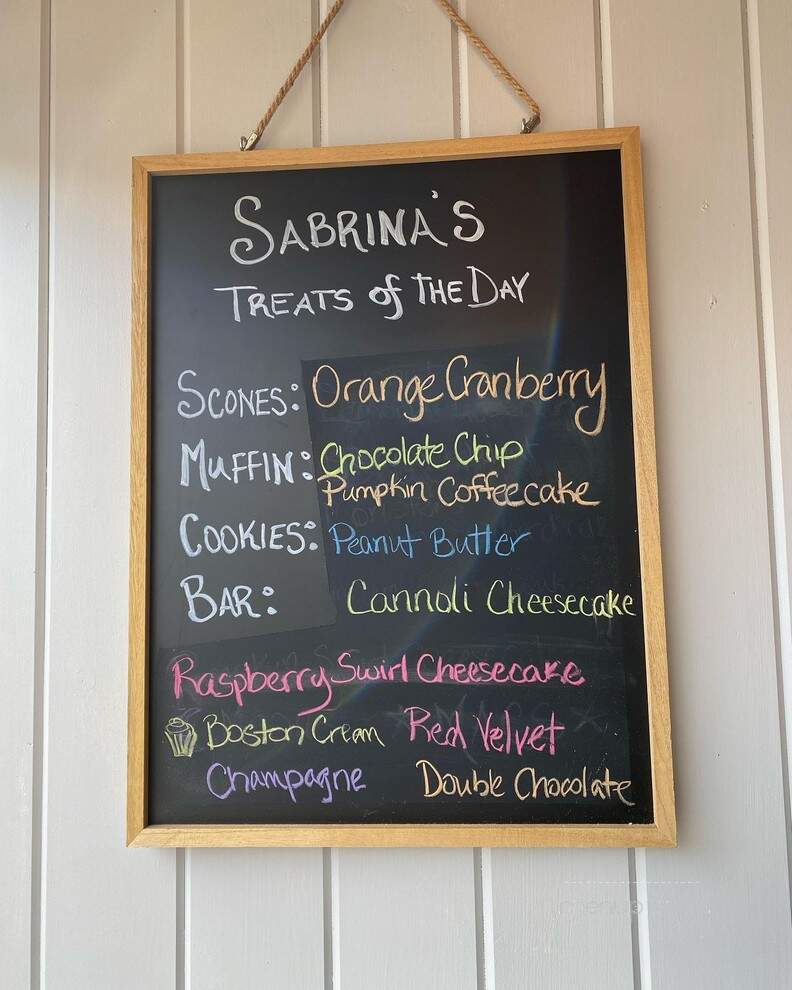 SABRINA'S
TREATS of THE DAY
SCONES: Orange Cranberry
MUFFIN: Chocolate Chip
Pumpkin Coffeecake
COOKIES: Peanut Butter
BAR: Cannoli Cheesecake
Raspberry Swirl Cheesecake
Boston Cream Red Velvet
Champagne Double Chocolate